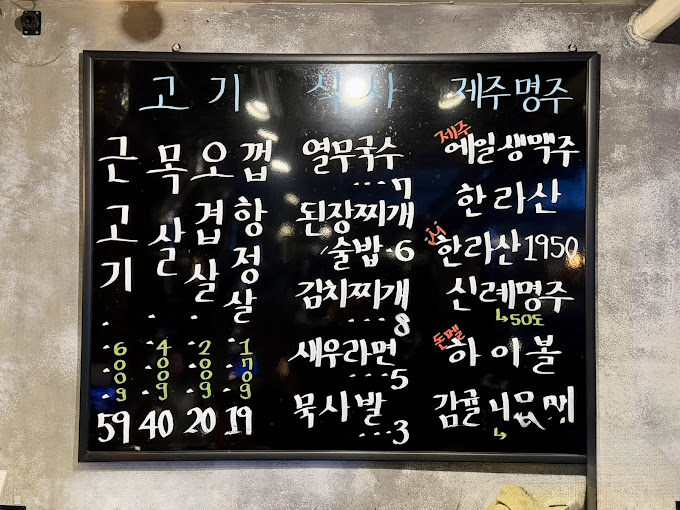 고기
근고기
600g
59
목살
400g
40
오겹살
200g
20
껍항정살
170g
19
식사
열무국수
...7
된장찌개
술밥.6
김치찌개
...8
새우라면
...5
묵사발
...3
제주명주
제주
에일생맥주
한라산
한라산1950
신례명주
↳50도
돈멜
하이볼
감귤